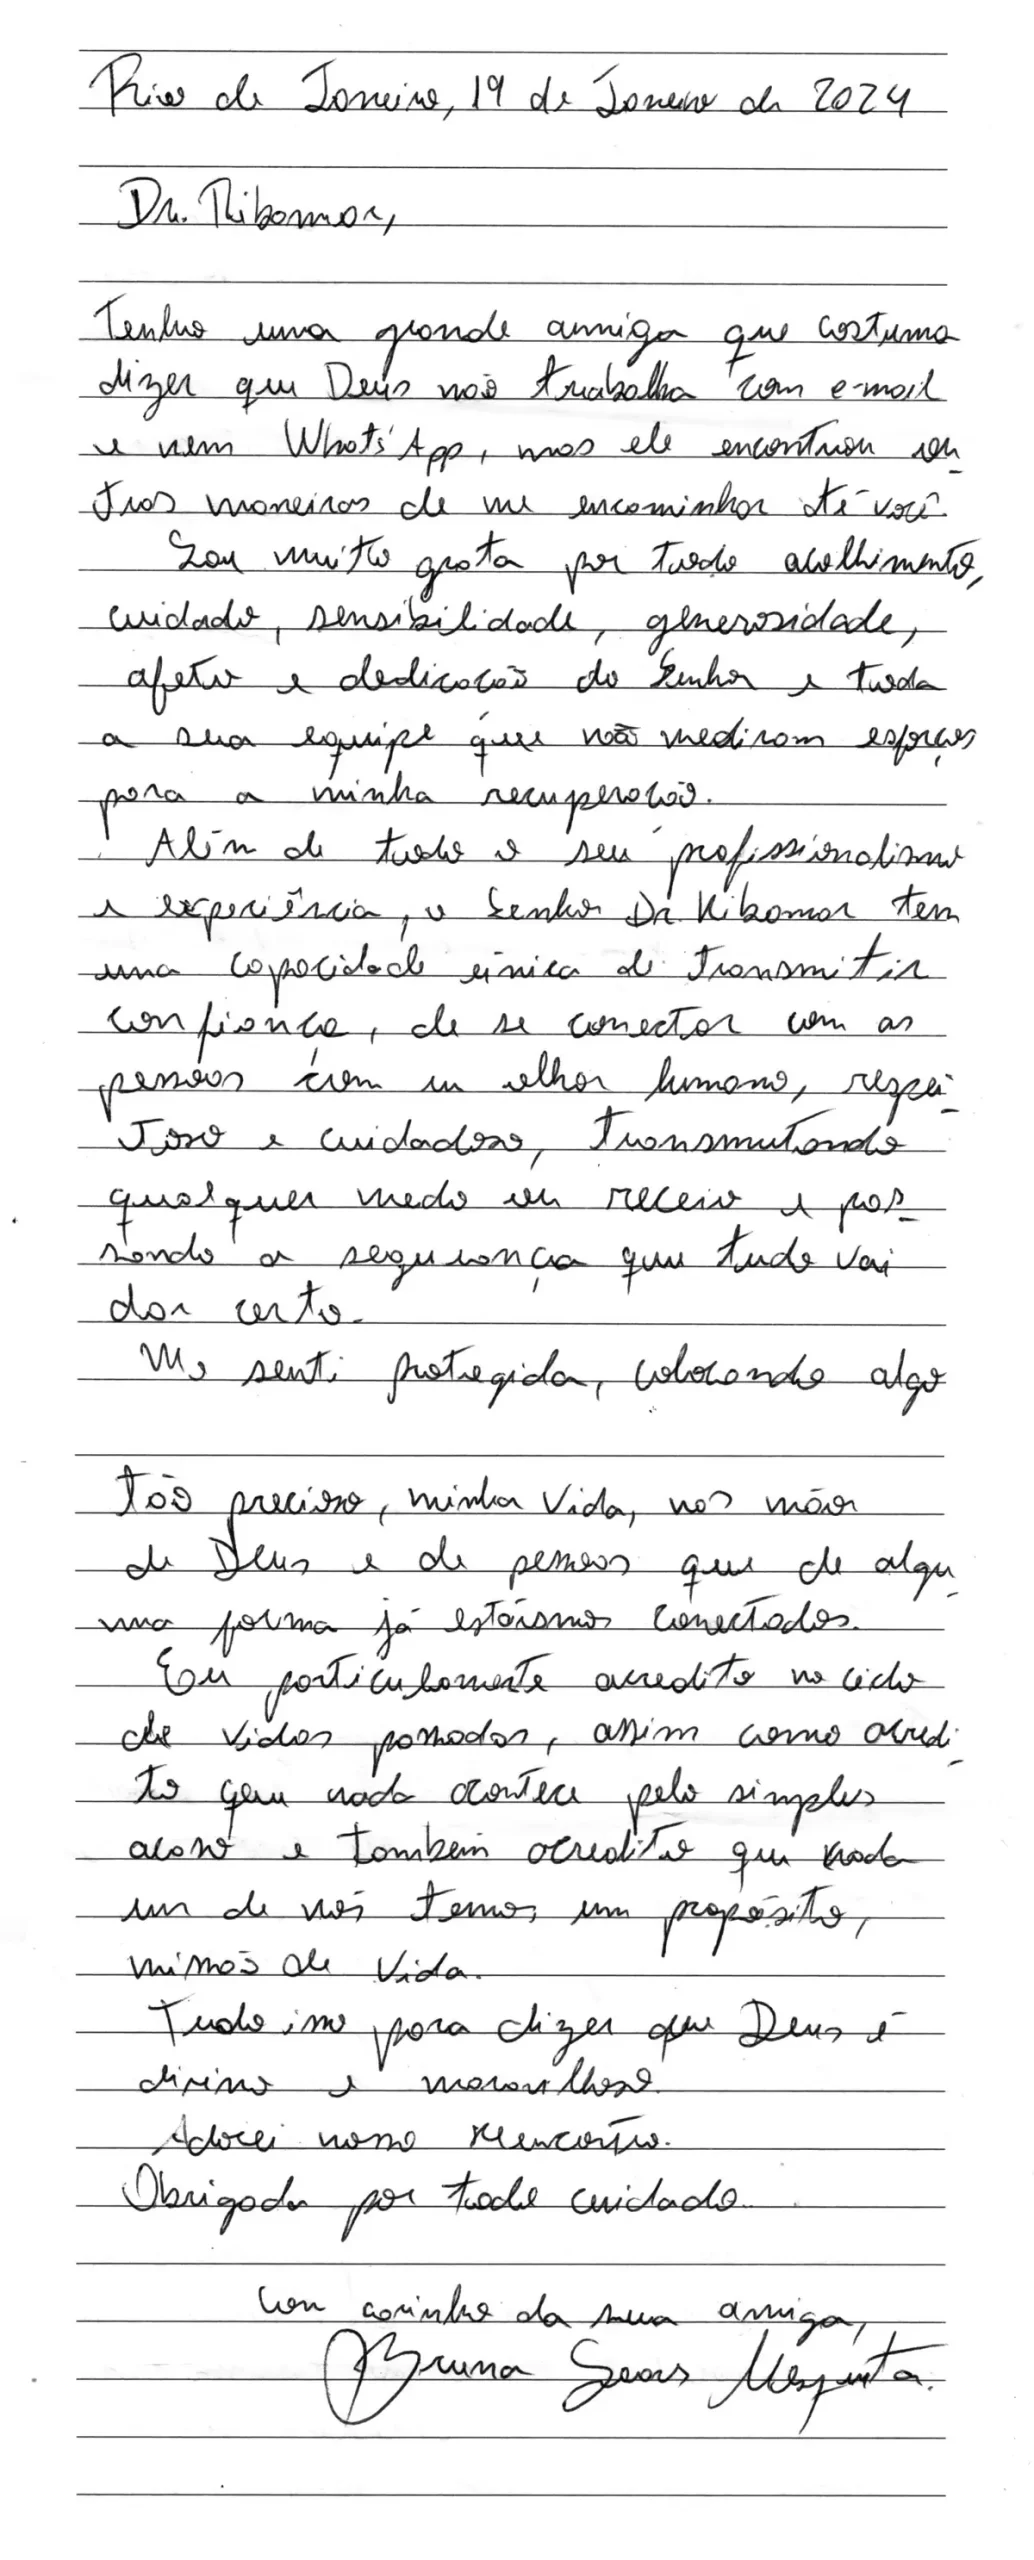 Rio de Janeiro, 19 de Janeiro de 2024
Dr. Ribamar,
Tenho uma grande amiga que costuma
dizer que Deus não trabalha com e-mail
e nem Whats'App, mas ele encontrou ou-
tras maneiras de me encaminhar até você.
Sou muito grata por todo acolhimento,
cuidado, sensibilidade, generosidade,
afeto e dedicação do Senhor e toda
a sua equipe que não mediram esforços
para a minha recuperação.
Além de todo o seu profissionalismo
e experiência, o Senhor Dr. Ribamar tem
uma capacidade única de transmitir
confiança, de se conectar com as
pessoas com um olhar humano, respei-
toso e cuidadoso, transmutando
qualquer medo ou receio e pas-
sando a segurança que tudo vai
dar certo.
Me senti protegida, colocando algo
tão precioso, minha vida, nas mãos
de Deus e de pessoas que de algu-
ma forma já estávamos conectados.
Eu particularmente acredito no ciclo
de vidas passadas, assim como acredi-
to que nada acontece pelo simples
acaso e também acredito que cada
um de nós temos um propósito,
missão de vida.
Tudo isso para dizer que Deus é
divino e maravilhoso.
Adorei nosso reencontro.
Obrigada por todo cuidado.
Com carinho da sua amiga,
Bruna Seoas Mesquita.